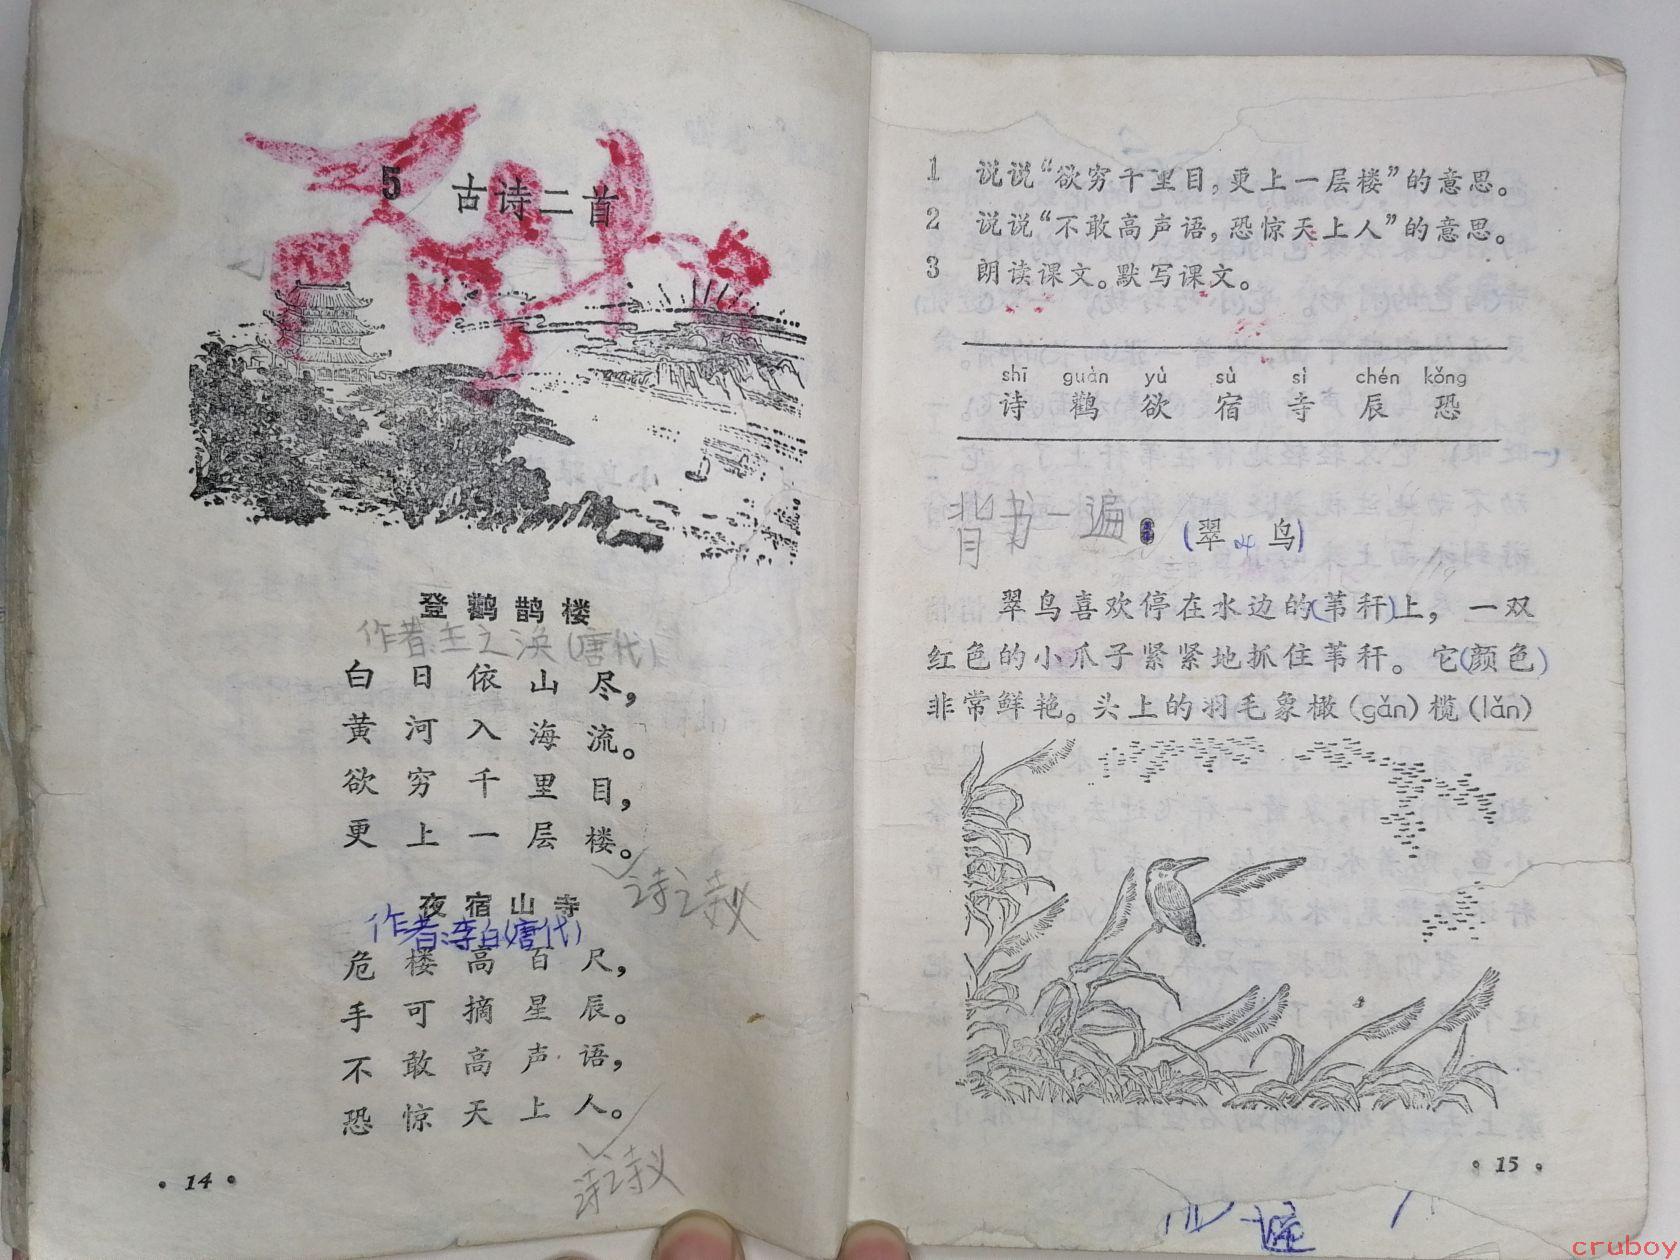 5 古诗二首
登鹳鹊楼
作者:王之涣(唐代)
白日依山尽，
黄河入海流。
欲穷千里目，
更上一层楼。
夜宿山寺
作者:李白(唐代)
危楼高百尺，
手可摘星辰。
不敢高声语，
恐惊天上人。
• 14 •
1 说说“欲穷千里目，更上一层楼”的意思。
2 说说“不敢高声语，恐惊天上人”的意思。
3 朗读课文。默写课文。
shī guàn yù sù sì chén kǒng
诗 鹳 欲 宿 寺 辰 恐
背书一遍
(翠 鸟)
翠鸟喜欢停在水边的(苇秆)上，一双
红色的小爪子紧紧地抓住苇秆。它(颜色)
非常鲜艳。头上的羽毛象橄(gǎn)榄(lǎn)
• 15 •
cruboy